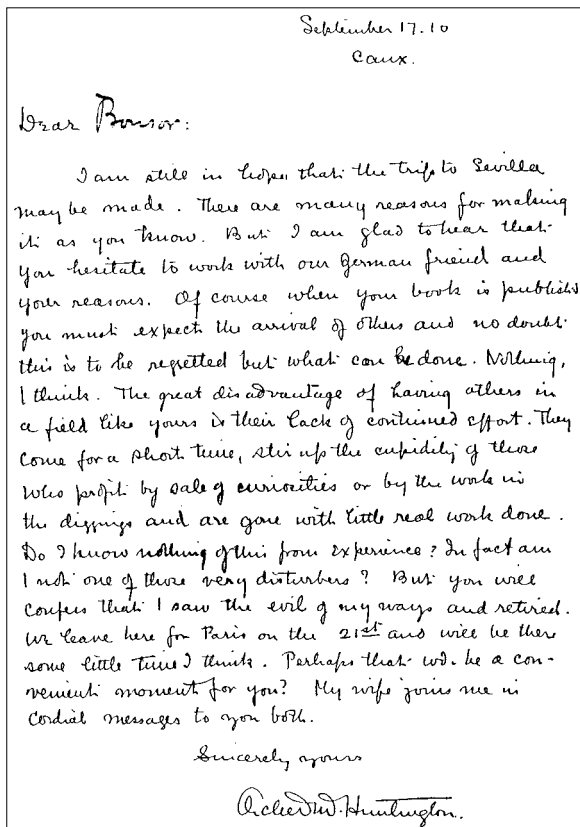 September 17. 10
Caux.
Dear Bonsor:
I am still in hopes that the trip to Sevilla
may be made. There are many reasons for making
it as you know. But I am glad to hear that
you hesitate to work with our German friend and
your reasons. Of course when your book is publish'd
you must expect the arrival of others and no doubt
this is to be regretted but what can be done. Nothing,
I think. The great disadvantage of having others in
a field like yours is their lack of continued effort. They
come for a short time, stir up the cupidity of those
who profit by sale of curiosities or by the work in
the diggings and are gone with little real work done.
Do I know nothing of this from experience? In fact am
I not one of those very disturbers? But you will
confess that I saw the evil of my ways and retired.
We leave here for Paris on the 21st and will be there
some little time I think. Perhaps that wd. be a con-
venient moment for you? My wife joins me in
cordial messages to you both.
Sincerely yours
Archer M. Huntington.